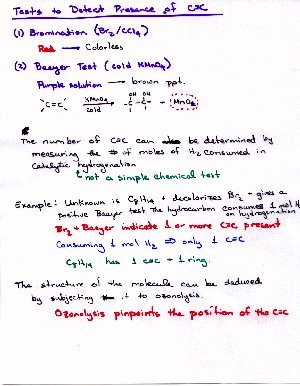 Tests to Detect Presence of C=C
(1) Bromination (Br2/CCl4)
Red → Colorless
(2) Baeyer Test (cold KMnO4)
Purple solution → brown ppt.
OH OH
C=C KMnO4 → -C-C- + MnO2
cold
The number of C=C can also be determined by
measuring the # of moles of H2 consumed in
Catalytic hydrogenation
not a simple chemical test
Example: Unknown is C8H14 + decolorizes Br2 + gives a
positive Baeyer test. The hydrocarbon consumes 1 mol H2
on hydrogenation
Br2 + Baeyer indicate 1 or more C=C present
Consuming 1 mol H2 ⇒ only 1 C=C
C8H14 has 1 C=C + 1 ring.
The structure of the molecule can be deduced
by subjecting it to ozonolysis.
Ozonolysis pinpoints the position of the C=C